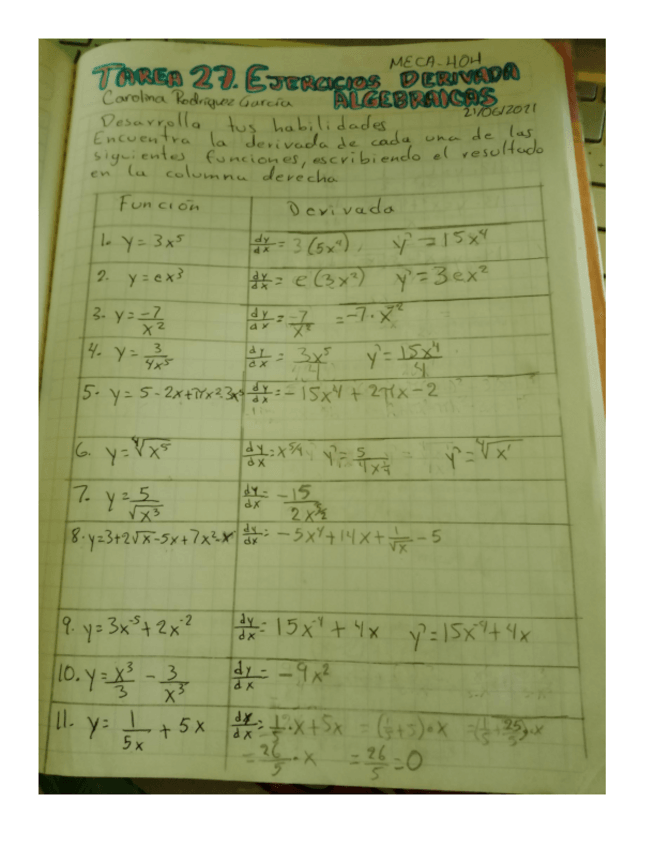 MECA-404
TAREA 27. EJERCICIOS DERIVADA
ALGEBRAICAS
Carolina Rodríguez García
21/06/2021
Desarrolla tus habilidades
Encuentra la derivada de cada una de las
siguientes funciones, escribiendo el resultado
en la columna derecha
Función Derivada
1. y = 3x⁵ dy/dx = 3(5x⁴), y' = 15x⁴
2. y = ex³ dy/dx = e(3x²) y' = 3ex²
3. y = -7/x² dy/dx = -7/x² = -7·x⁻²
4. y = 3/4x⁵ dy/dx = 3x⁵/4 y' = 15x⁴/4
5. y = 5-2x+πx²-3x⁵ dy/dx = -15x⁴+2πx-2
6. y = ∜x⁵ dy/dx = x^5/4 y' = y' = ∜x
7. y = 5/√x³ dy/dx = -15/2x
8. y=3+2√x-5x+7x²-x⁵ dy/dx = -5x⁴+14x+1/√x-5
9. y = 3x⁻⁵+2x⁻² dy/dx = 15x⁻⁴+4x y' = 15x⁻⁴+4x
10. y = x³/3 - 3/x³ dy/dx = -9x²
11. y = 1/5x + 5x dy/dx = ·x+5x = (1/5+5)·x =(1/5+25/5)·x
= 26/5·x = 26/5 = 0